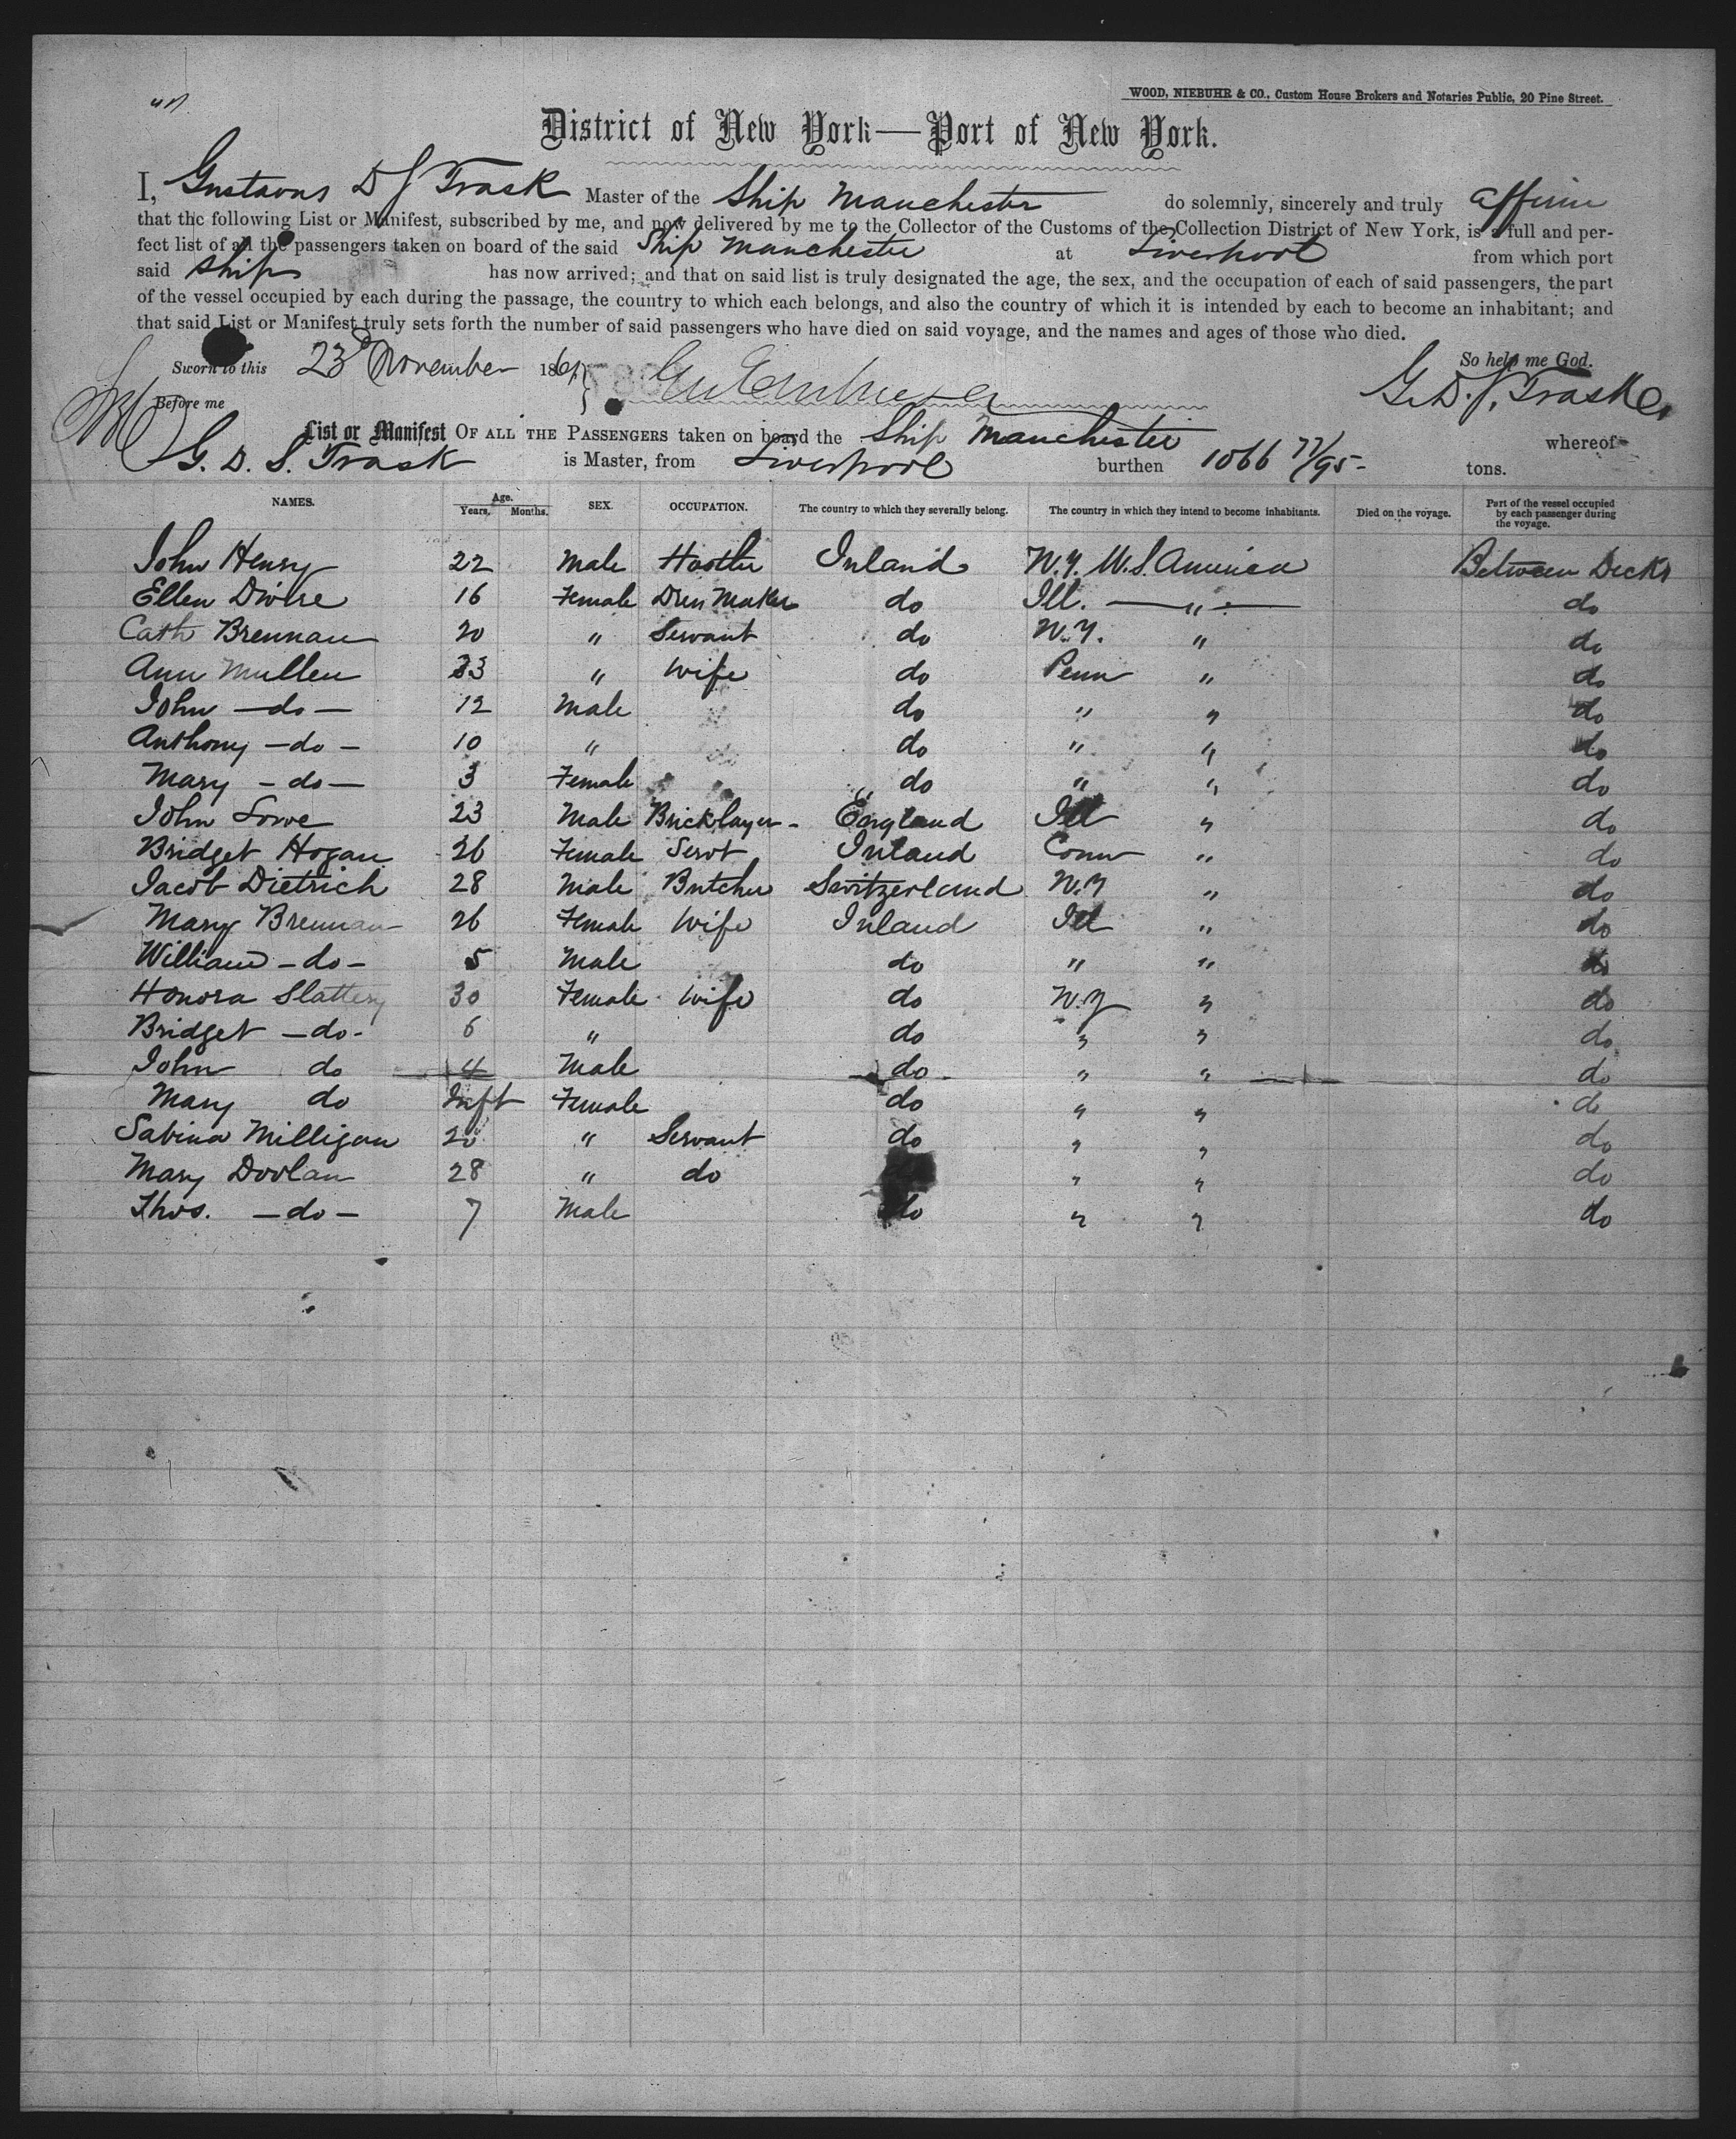 WOOD, NIEBUHR & CO., Custom House Brokers and Notaries Public, 20 Pine Street.
District of New York—Port of New York.
I, Gustavus D S Trask Master of the Ship Manchester do solemnly, sincerely and truly affirm
that the following List or Manifest, subscribed by me, and now delivered by me to the Collector of the Customs of the Collection District of New York, is a full and per-
fect list of all the passengers taken on board of the said Ship Manchester at Liverpool from which port
said Ship has now arrived; and that on said list is truly designated the age, the sex, and the occupation of each of said passengers, the part
of the vessel occupied by each during the passage, the country to which each belongs, and also the country of which it is intended by each to become an inhabitant; and
that said List or Manifest truly sets forth the number of said passengers who have died on said voyage, and the names and ages of those who died.
Sworn to this 23d November 1861 So help me God.
Before me G. D. S. Trask
List or Manifest OF ALL THE PASSENGERS taken on board the Ship Manchester whereof
G. D. S. Trask is Master, from Liverpool burthen 1066 77/95 tons.
NAMES. Age. Years. Months. SEX. OCCUPATION. The country to which they severally belong. The country in which they intend to become inhabitants. Died on the voyage. Part of the vessel occupied by each passenger during the voyage.
John Henry 22 Male Hostler Ireland N.Y. U.S. America Between Decks
Ellen Divire 16 Female Dress Maker do Ill. — " — do
Cath Brennan 20 " Servant do N.Y. " do
Ann Mullen 33 " Wife do Penn " do
John — do — 12 Male do " " do
Anthony — do — 10 " do " " do
Mary — do — 3 Female do " " do
John Lowe 23 Male Bricklayer England Ill " do
Bridget Hogan 26 Female Servt Ireland Conn " do
Jacob Dietrich 28 Male Butcher Switzerland N.Y " do
Mary Brennan 26 Female Wife Ireland Ill " do
William — do — 5 Male do " " do
Honora Slattery 30 Female Wife do N.Y " do
Bridget — do - 6 " do " " do
John do 4 Male do " " do
Mary do Inft Female do " " do
Sabina Milligan 20 " Servant do " " do
Mary Doolan 28 " do " " do
Thos. — do — 7 Male do " " do